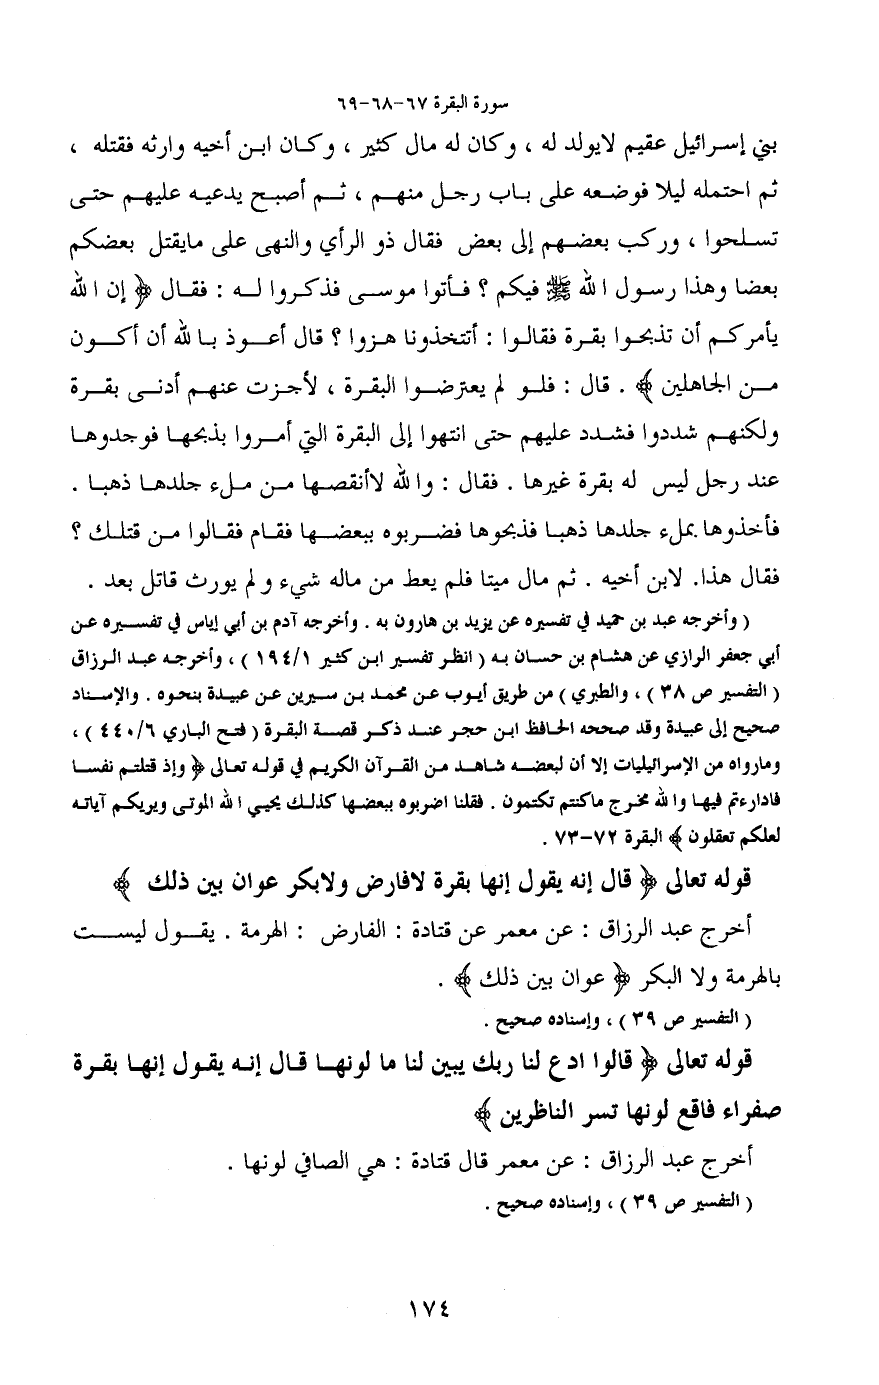 سورة البقرة ٦٧-٦٨-٦٩
بني إسرائيل عقيم لايولد له ، وكان له مال كثير ، وكان ابن أخيه وارثه فقتله ،
ثم احتمله ليلا فوضعه على باب رجل منهم ، ثم أصبح يدعيه عليهم حتى
تسلحوا ، وركب بعضهم إلى بعض فقال ذو الرأي والنهى على مايقتل بعضكم
بعضا وهذا رسول الله ﷺ فيكم ؟ فأتوا موسى فذكروا له : فقال ﴿ إن الله
يأمركم أن تذبحوا بقرة فقالوا : أتتخذونا هزوا ؟ قال أعوذ بالله أن أكون
من الجاهلين ﴾ . قال : فلو لم يعترضوا البقرة ، لأجزت عنهم أدنى بقرة
ولكنهم شددوا فشدد عليهم حتى انتهوا إلى البقرة التي أمروا بذبحها فوجدوها
عند رجل ليس له بقرة غيرها . فقال : والله لاأنقصها من ملء جلدها ذهبا .
فأخذوها بملء جلدها ذهبا فذبحوها فضربوه ببعضها فقام فقالوا من قتلك ؟
فقال هذا. لابن أخيه . ثم مال ميتا فلم يعط من ماله شيء ولم يورث قاتل بعد .
( وأخرجه عبد بن حميد في تفسيره عن يزيد بن هارون به . وأخرجه آدم بن أبي إياس في تفسيره عن
أبي جعفر الرازي عن هشام بن حسان به ( انظر تفسير ابن كثير ١٩٤/١ ) ، وأخرجه عبد الرزاق
( التفسير ص ٣٨ ) ، والطبري ) من طريق أيوب عن محمد بن سيرين عن عبيدة بنحوه . والإسناد
صحيح إلى عبيدة وقد صححه الحافظ ابن حجر عند ذكر قصة البقرة ( فتح الباري ٤٤٠/٦ ) ،
ومارواه من الإسرائيليات إلا أن لبعضه شاهد من القرآن الكريم في قوله تعالى ﴿ وإذ قتلتم نفسا
فادارءتم فيها والله مخرج ماكنتم تكتمون . فقلنا اضربوه ببعضها كذلك يحيي الله الموتى ويريكم آياته
لعلكم تعقلون ﴾ البقرة ٧٢-٧٣ .
قوله تعالى ﴿ قال إنه يقول إنها بقرة لافارض ولابكر عوان بين ذلك ﴾
أخرج عبد الرزاق : عن معمر عن قتادة : الفارض : الهرمة . يقول ليست
بالهرمة ولا البكر ﴿ عوان بين ذلك ﴾ .
( التفسير ص ٣٩ ) ، وإسناده صحيح .
قوله تعالى ﴿ قالوا ادع لنا ربك يبين لنا ما لونها قال إنه يقول إنها بقرة
صفراء فاقع لونها تسر الناظرين ﴾
أخرج عبد الرزاق : عن معمر قال قتادة : هي الصافي لونها .
( التفسير ص ٣٩ ) ، وإسناده صحيح .
١٧٤